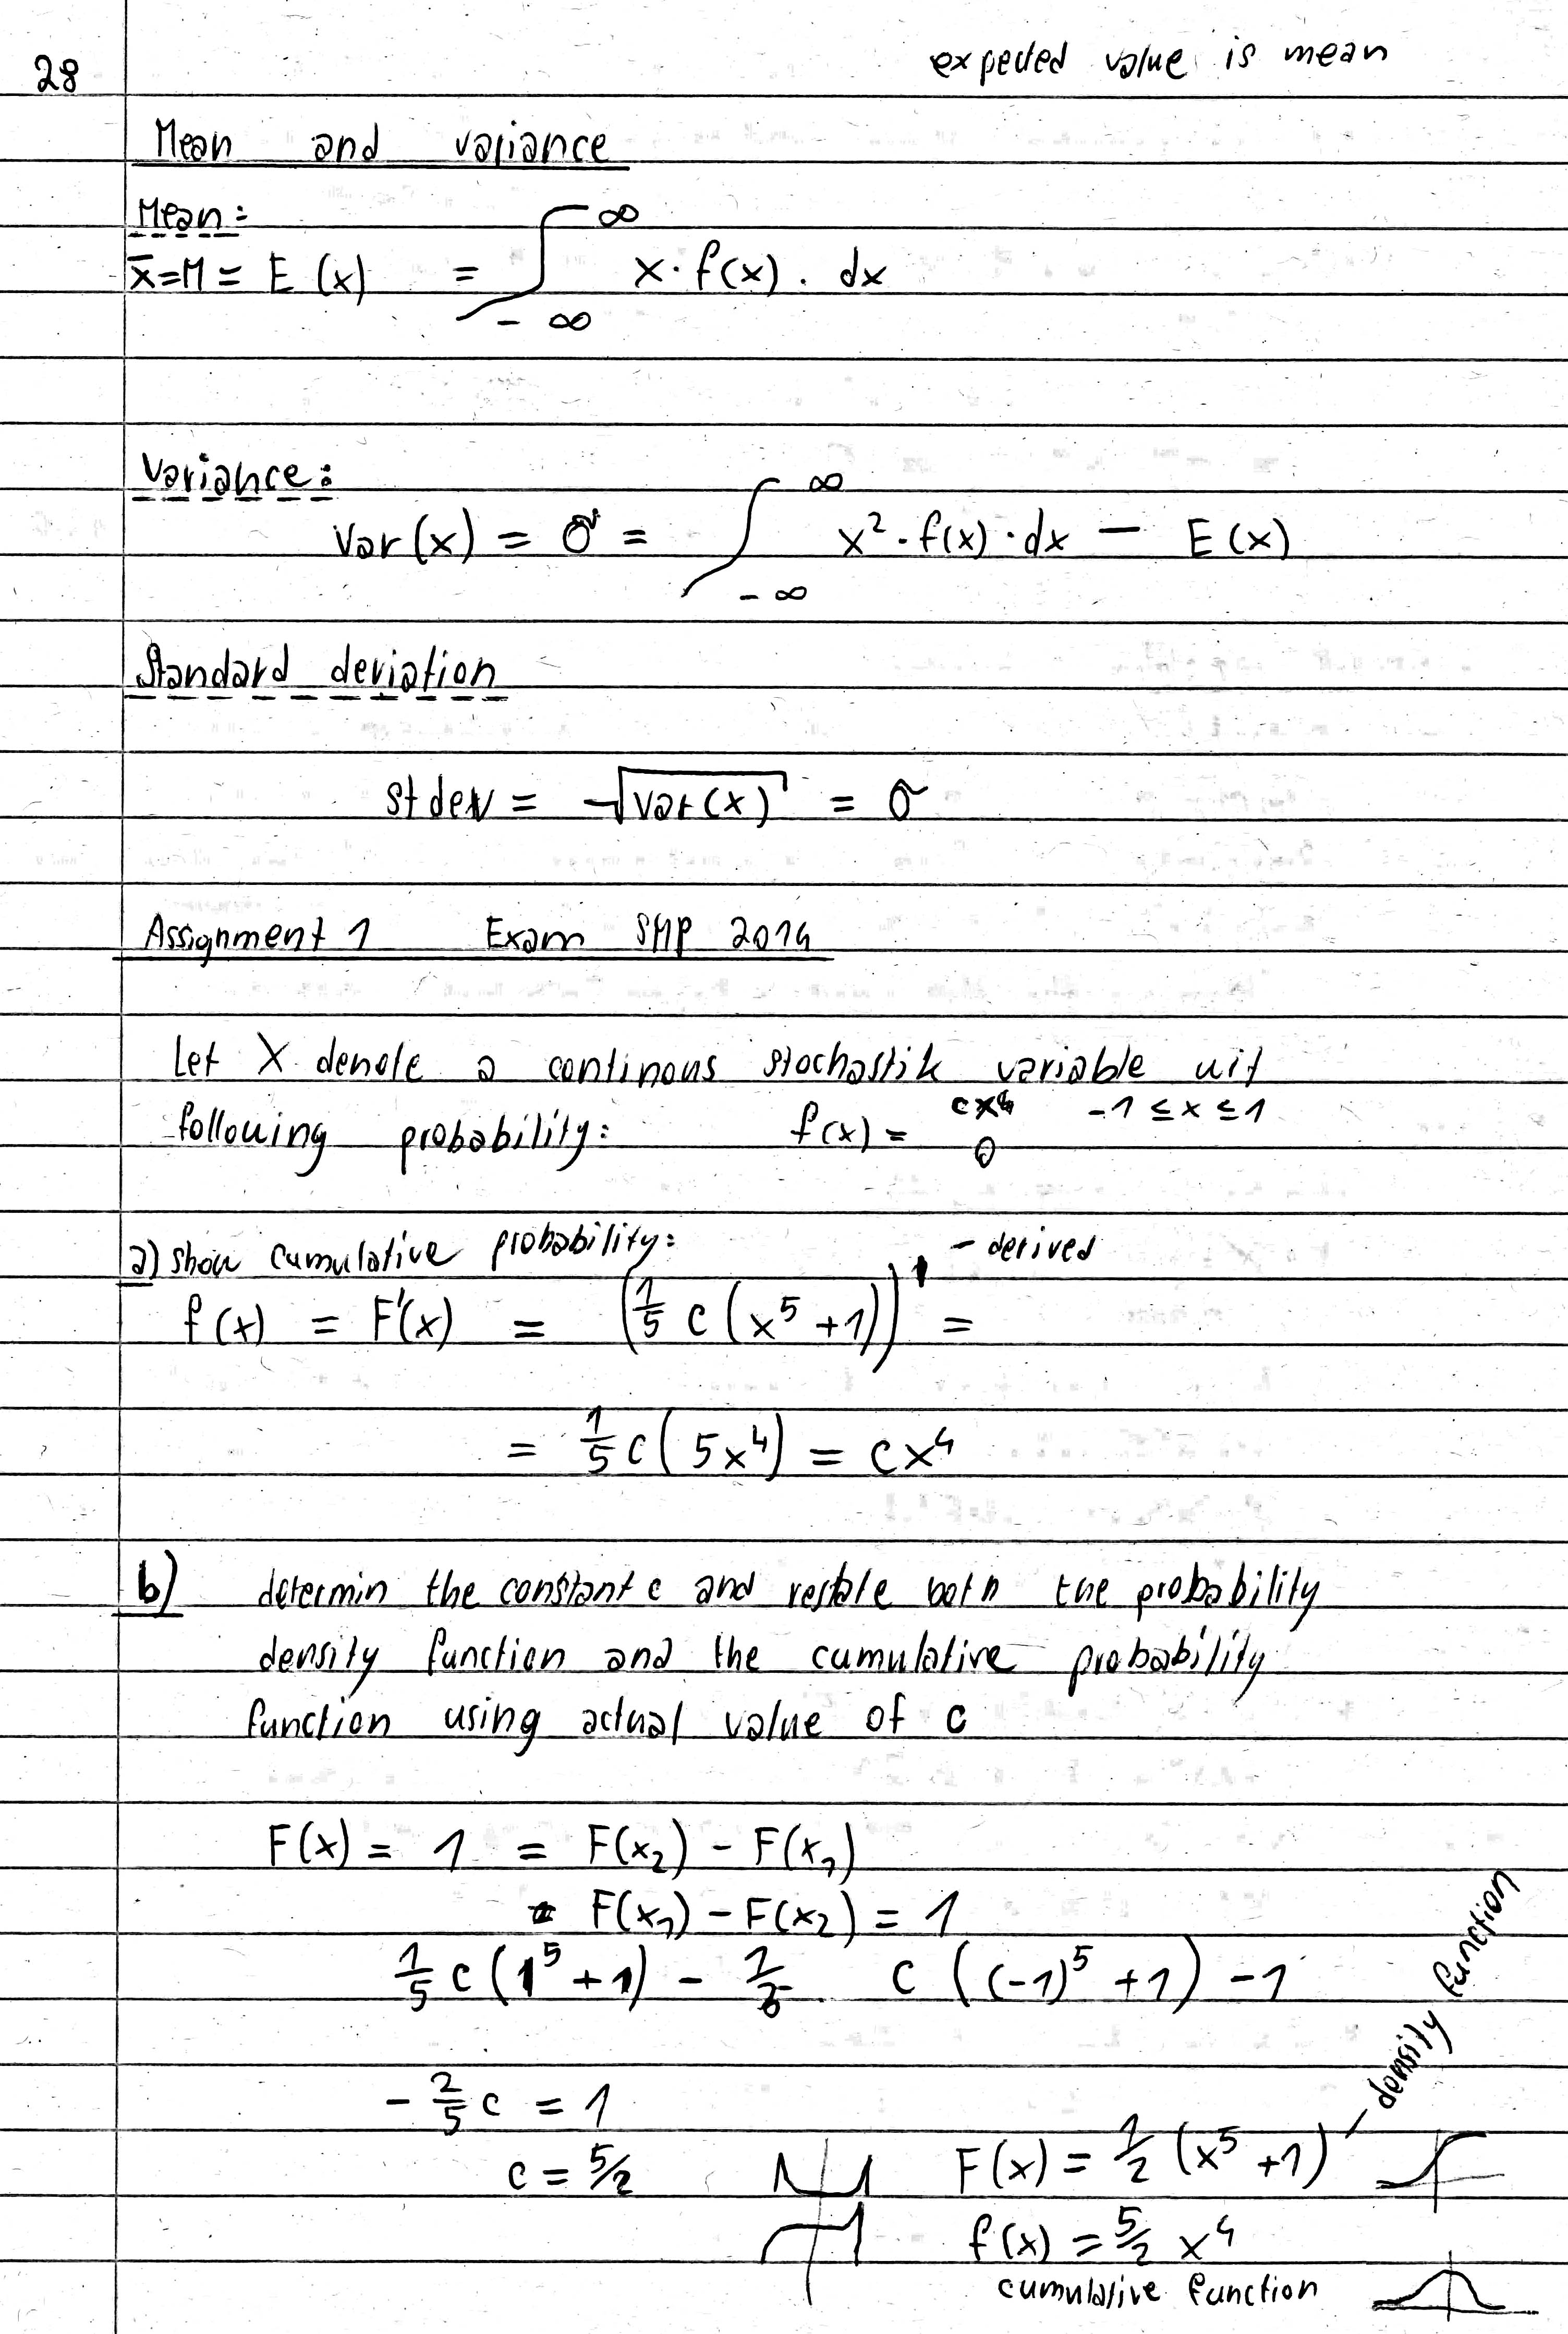 28
expected value is mean
Mean and variance
Mean:
x̄ = M = E (x) = ∫ ∞ -∞ x · f(x) · dx
Variance:
Var (x) = σ² = ∫ ∞ -∞ x² · f(x) · dx — E (x)
Standard deviation
stdev = √var(x) = σ
Assignment 1 Exam SMP 2014
Let X denote a continous stochastik variable wit
following probability: f(x) = cx⁴ -1 ≤ x ≤ 1
0
a) show cumulative probability: - derived
f (x) = F'(x) = (1/5 c (x⁵ +1))' =
= 1/5 c ( 5x⁴) = cx⁴
b) determin the constant c and restate both the probability
density function and the cumulative probability
function using actual value of c
F(x) = 1 = F(x₂) - F(x₁)
F(x₁) - F(x₂) = 1
1/5 c (1⁵ + 1) - 1/5 c ((-1)⁵ + 1) - 1
- 2/5 c = 1
c = 5/2
F(x) = 1/2 (x⁵ +1) - density function
f(x) = 5/2 x⁴
cumulative function